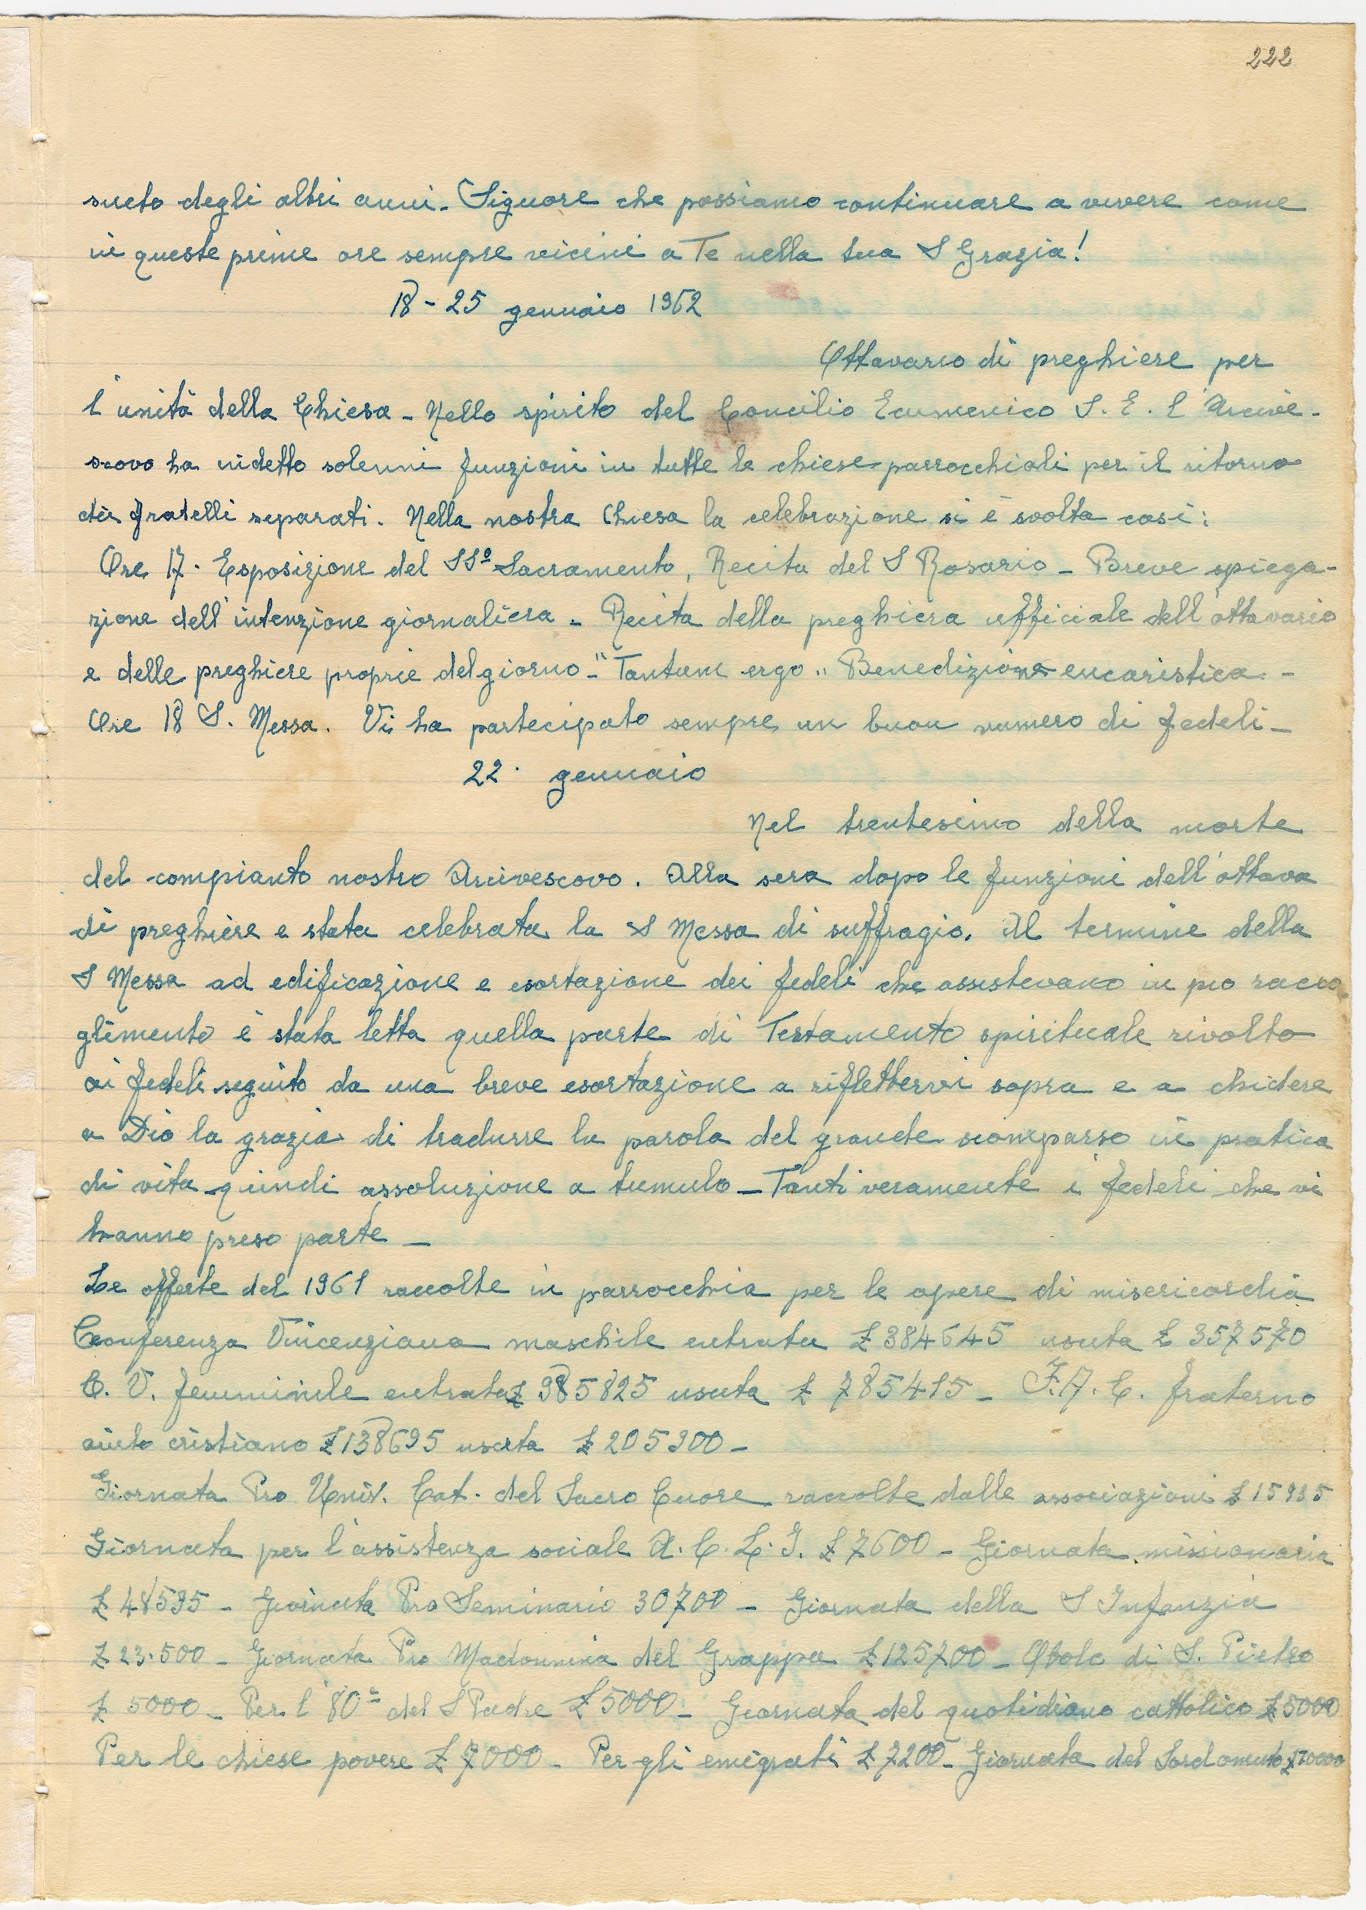 222
sueto degli altri anni. Signore che possiamo continuare a vivere come
in queste prime ore sempre vicini a Te nella tua S Grazia!
18 - 25 gennaio 1962
Ottavario di preghiere per
l'unità della Chiesa - Nello spirito del Concilio Ecumenico S. E. l'Arcive-
scovo ha indetto solenni funzioni in tutte le chiese parrocchiali per il ritorno
dei fratelli separati. Nella nostra Chiesa la celebrazione si è svolta così:
Ore 17. Esposizione del SSº Sacramento, Recita del S Rosario - Breve spiega-
zione dell'intenzione giornaliera - Recita della preghiera ufficiale dell'ottavario
e delle preghiere proprie del giorno - "Tantum ergo" Benedizione eucaristica. -
Ore 18 S. Messa. Vi ha partecipato sempre un buon numero di fedeli -
22. gennaio
Nel trentesimo della morte
del compianto nostro Arcivescovo. Alla sera dopo le funzioni dell'ottava
di preghiere e stata celebrata la S Messa di suffragio. Al termine della
S Messa ad edificazione e esortazione dei fedeli che assistevano in pio racco
glimento è stata letta quella parte di Testamento spirituale rivolto
ai fedeli seguito da una breve esortazione a riflettervi sopra e a chidere
a Dio la grazia di tradurre la parola del grande scomparso in pratica
di vita quindi assoluzione a tumulo - Tanti veramente i fedeli che vi
hanno preso parte -
Le offerte del 1961 raccolte in parrocchia per le opere di misericordia
Conferenza Vincenziana maschile entrata £ 384645 uscita £ 357570
C. V. femminile entrata £ 985825 uscita £ 785415 - F. A. C. fraterno
aiuto cristiano £ 138695 uscita £ 205900 -
Giornata Pro Univ. Cat. del Sacro Cuore raccolte dalle associazioni £ 15995
Giornata per l'assistenza sociale A. C. L. I. £ 7600 - Giornata missionaria
£ 48595 - Giornata Pro Seminario 30700 - Giornata della S Infanzia
£ 23.500 - Giornata Pro Madonnina del Grappa £ 125700 - Obolo di S. Pietro
£ 5000 - Per l'80º del S Padre £ 5000 - Giornata del quotidiano cattolico £ 5000
Per le chiese povere £ 7000 - Per gli emigrati £ 7200 - Giornata del Sordomuto £